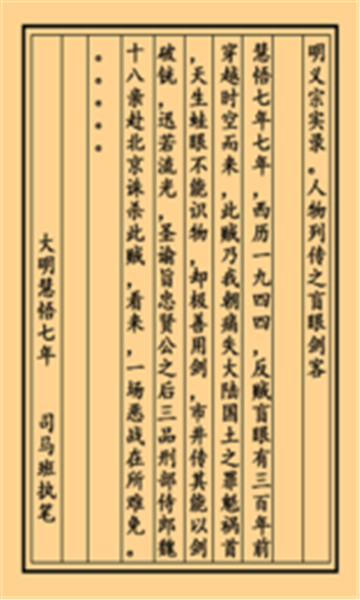 明义宗实录。人物列传之盲眼剑客
慧悟七年七年，西历一九四四，反贼盲眼有三百年前
穿越时空而来，此贼乃我朝痛失大陆国土之罪魁祸首
，天生蛙眼不能识物，却极善用剑，市井传其能以剑
破铳，迅若流光，圣谕旨忠贤公之后三品刑部侍郎魏
十八亲赴北京诛杀此贼，看来，一场恶战在所难免。
。。。。。
大明慧悟七年 司马班执笔